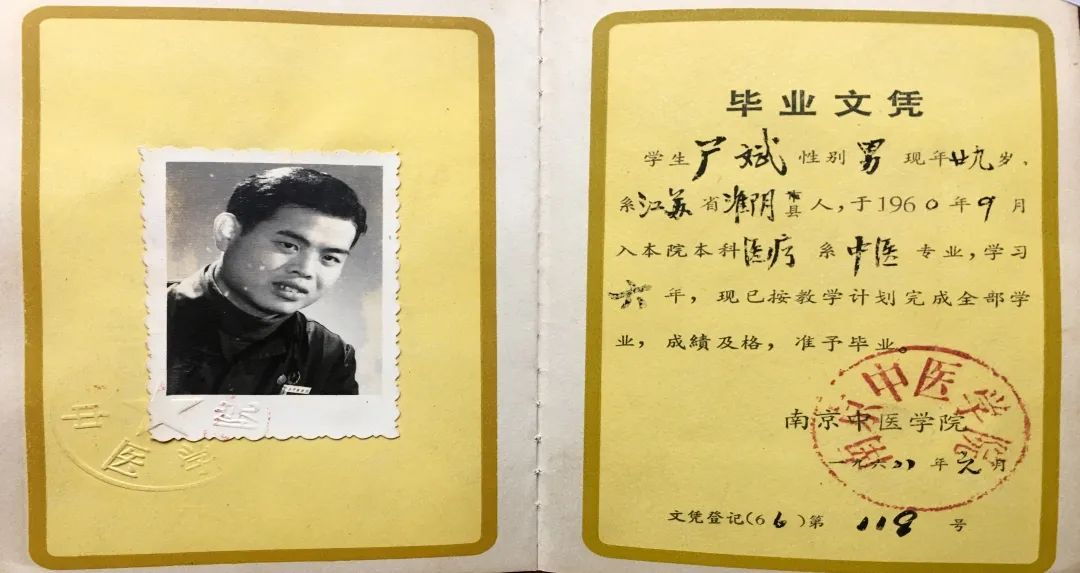 毕业文凭
学生 斌 性别 男 现年廿九岁、
系江苏省淮阴市县人,于1960年9月
入本院本科医疗系中医专业,学习
六年,现已按教学计划完成全部学
业,成績及格,准予毕业。
南京中医学院
一九六八年元月
文凭登记(66)第118号
南京中医学院
中医学